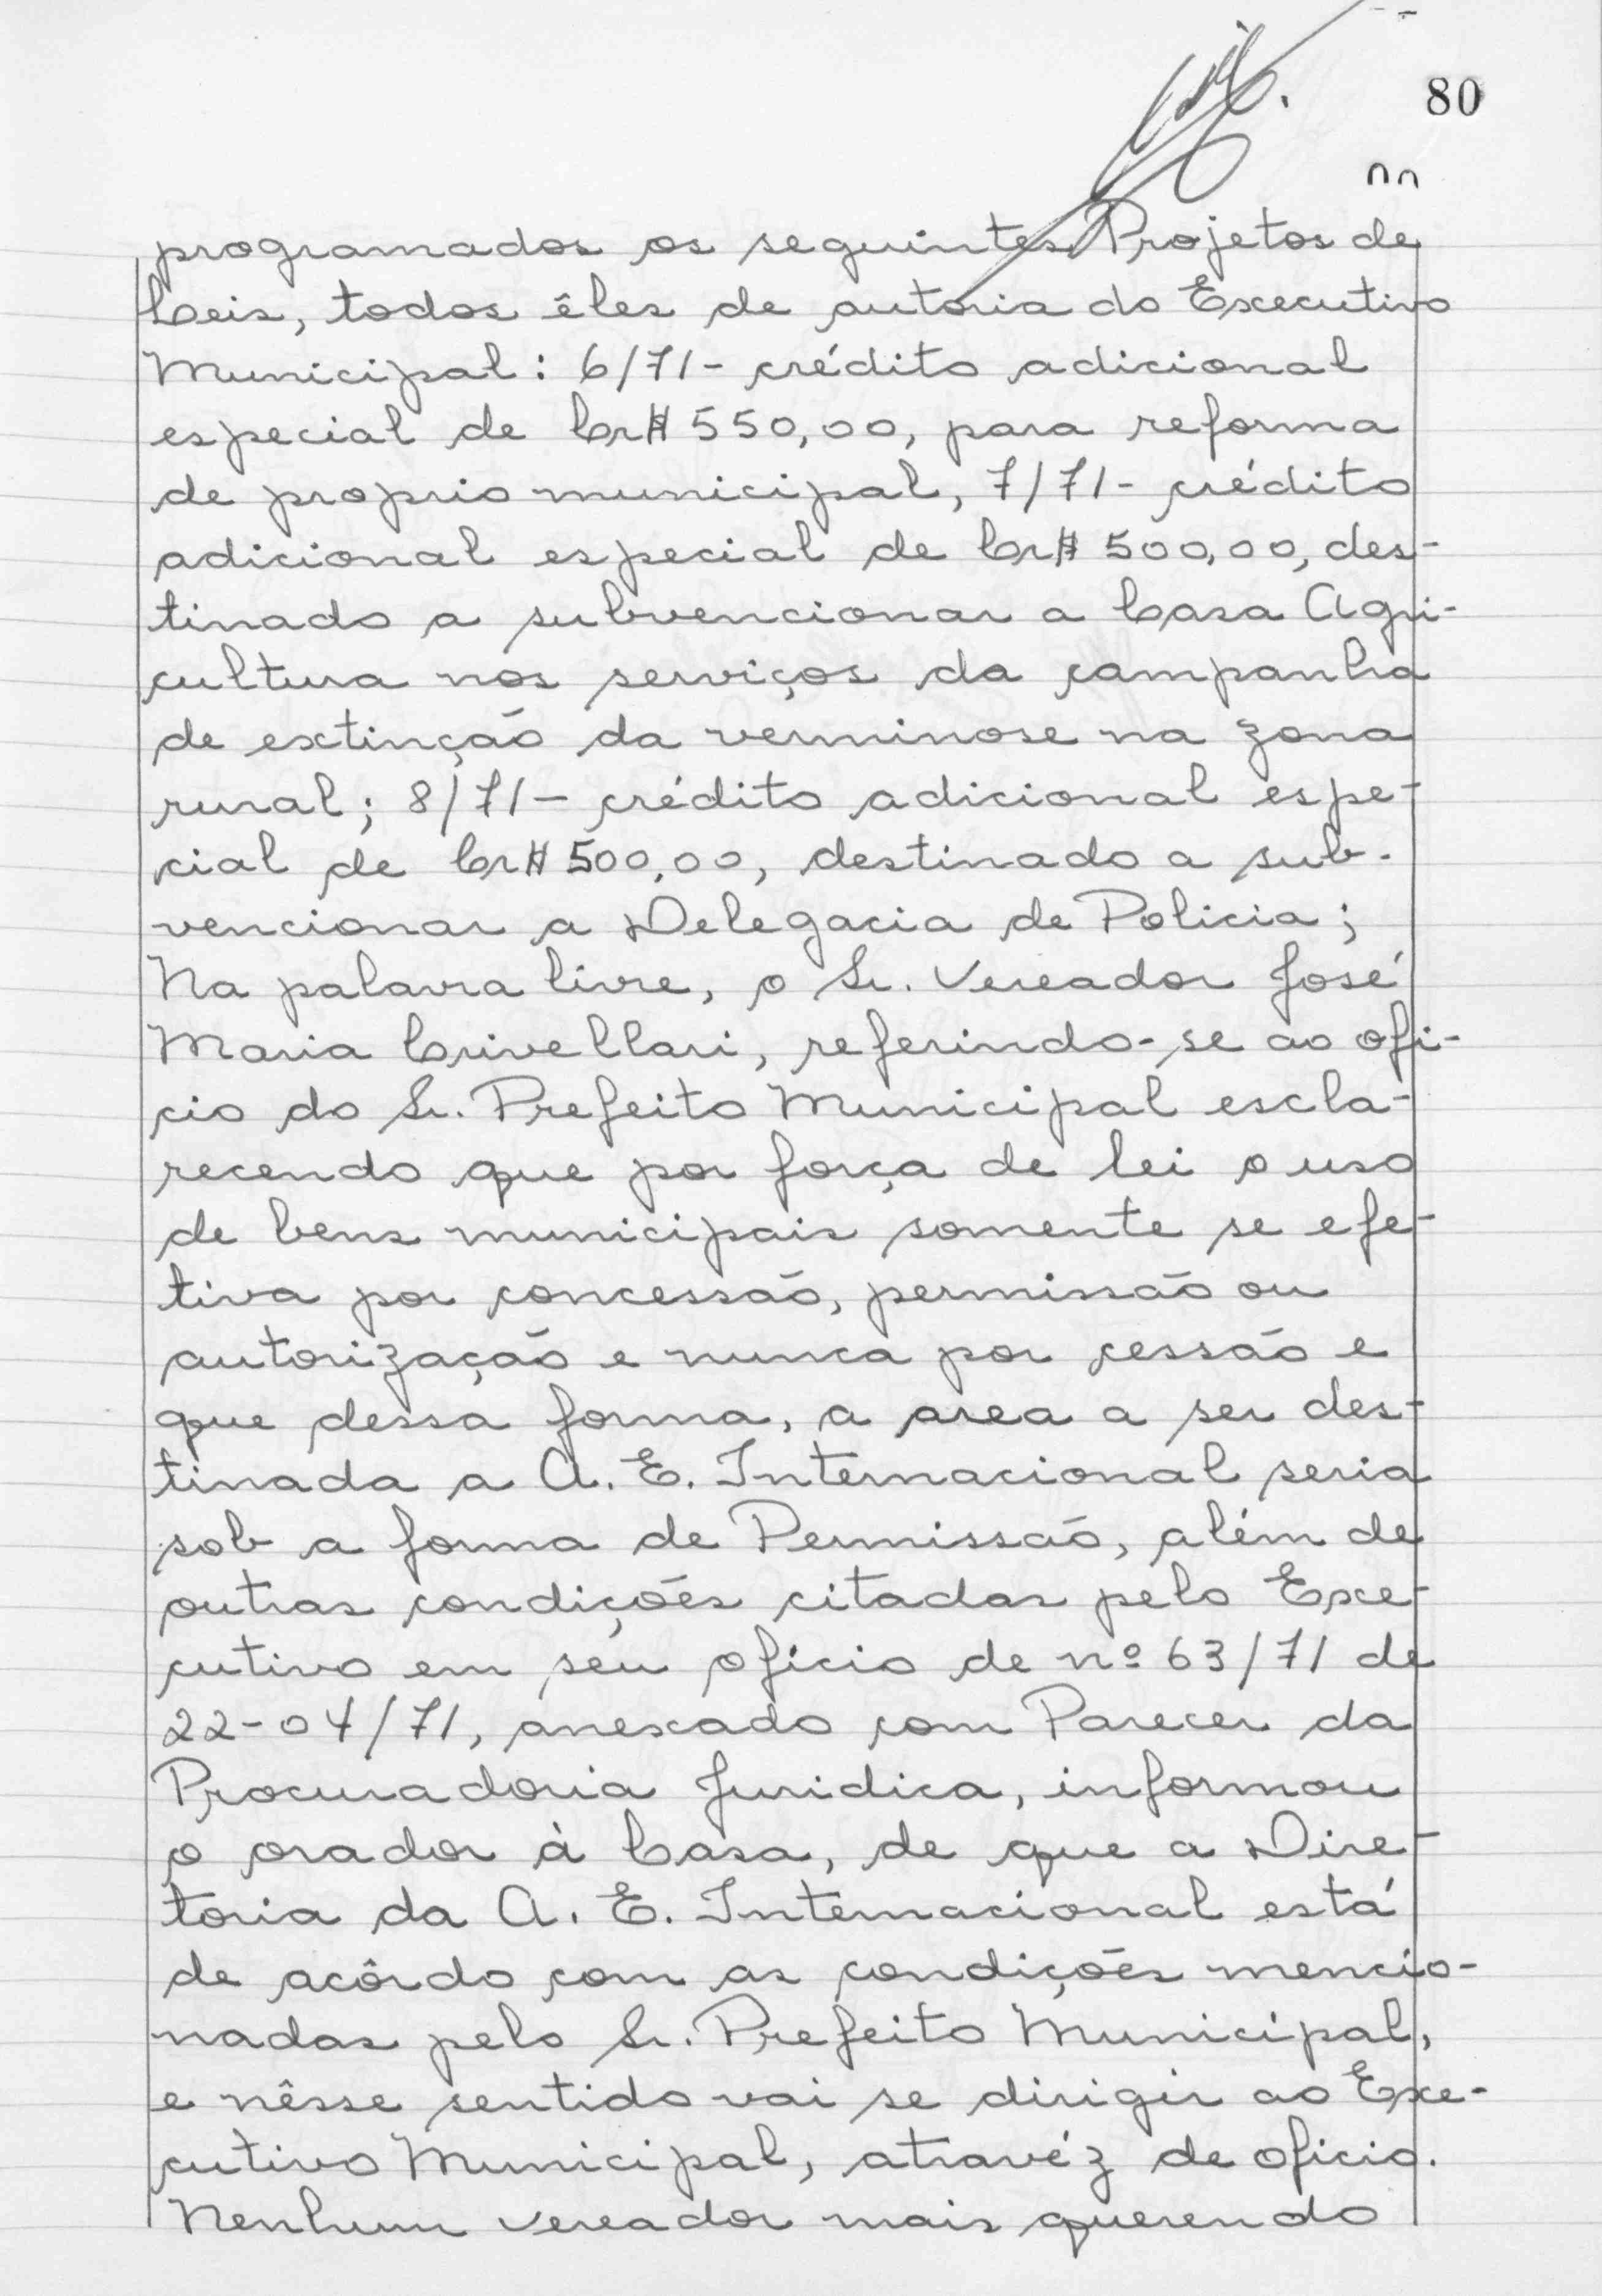 80
programados os seguintes Projetos de
Leis, todos êles de autoria do Executivo
Municipal: 6/71- crédito adicional
especial de Cr$ 550,00, para reforma
de proprio municipal, 7/71- crédito
adicional especial de Cr$ 500,00, des-
tinado a subvencionar a Casa Agri-
cultura nos serviços da campanha
de extinção da verminose na zona
rural; 8/71- crédito adicional espe-
cial de Cr$ 500,00, destinado a sub-
vencionar a Delegacia de Policia;
Na palavra livre, o Sr. Vereador José
Maria Crivellari, referindo-se ao ofi-
cio do Sr. Prefeito Municipal escla-
recendo que por força de lei o uso
de bens municipais somente se efe-
tiva por concessão, permissão ou
autorização e nunca por cessão e
que dessa forma, a area a ser des-
tinada a A. E. Internacional seria
sob a forma de Permissão, além de
outras condições citadas pelo Exe-
cutivo em seu oficio de nº 63/71 de
22-04/71, anexado com Parecer da
Procuradoria Juridica, informou
o orador à Casa, de que a Dire-
toria da A. E. Internacional está
de acôrdo com as condições mencio-
nadas pelo Sr. Prefeito Municipal,
e nêsse sentido vai se dirigir ao Exe-
cutivo Municipal, atravéz de oficio.
Nenhum vereador mais querendo